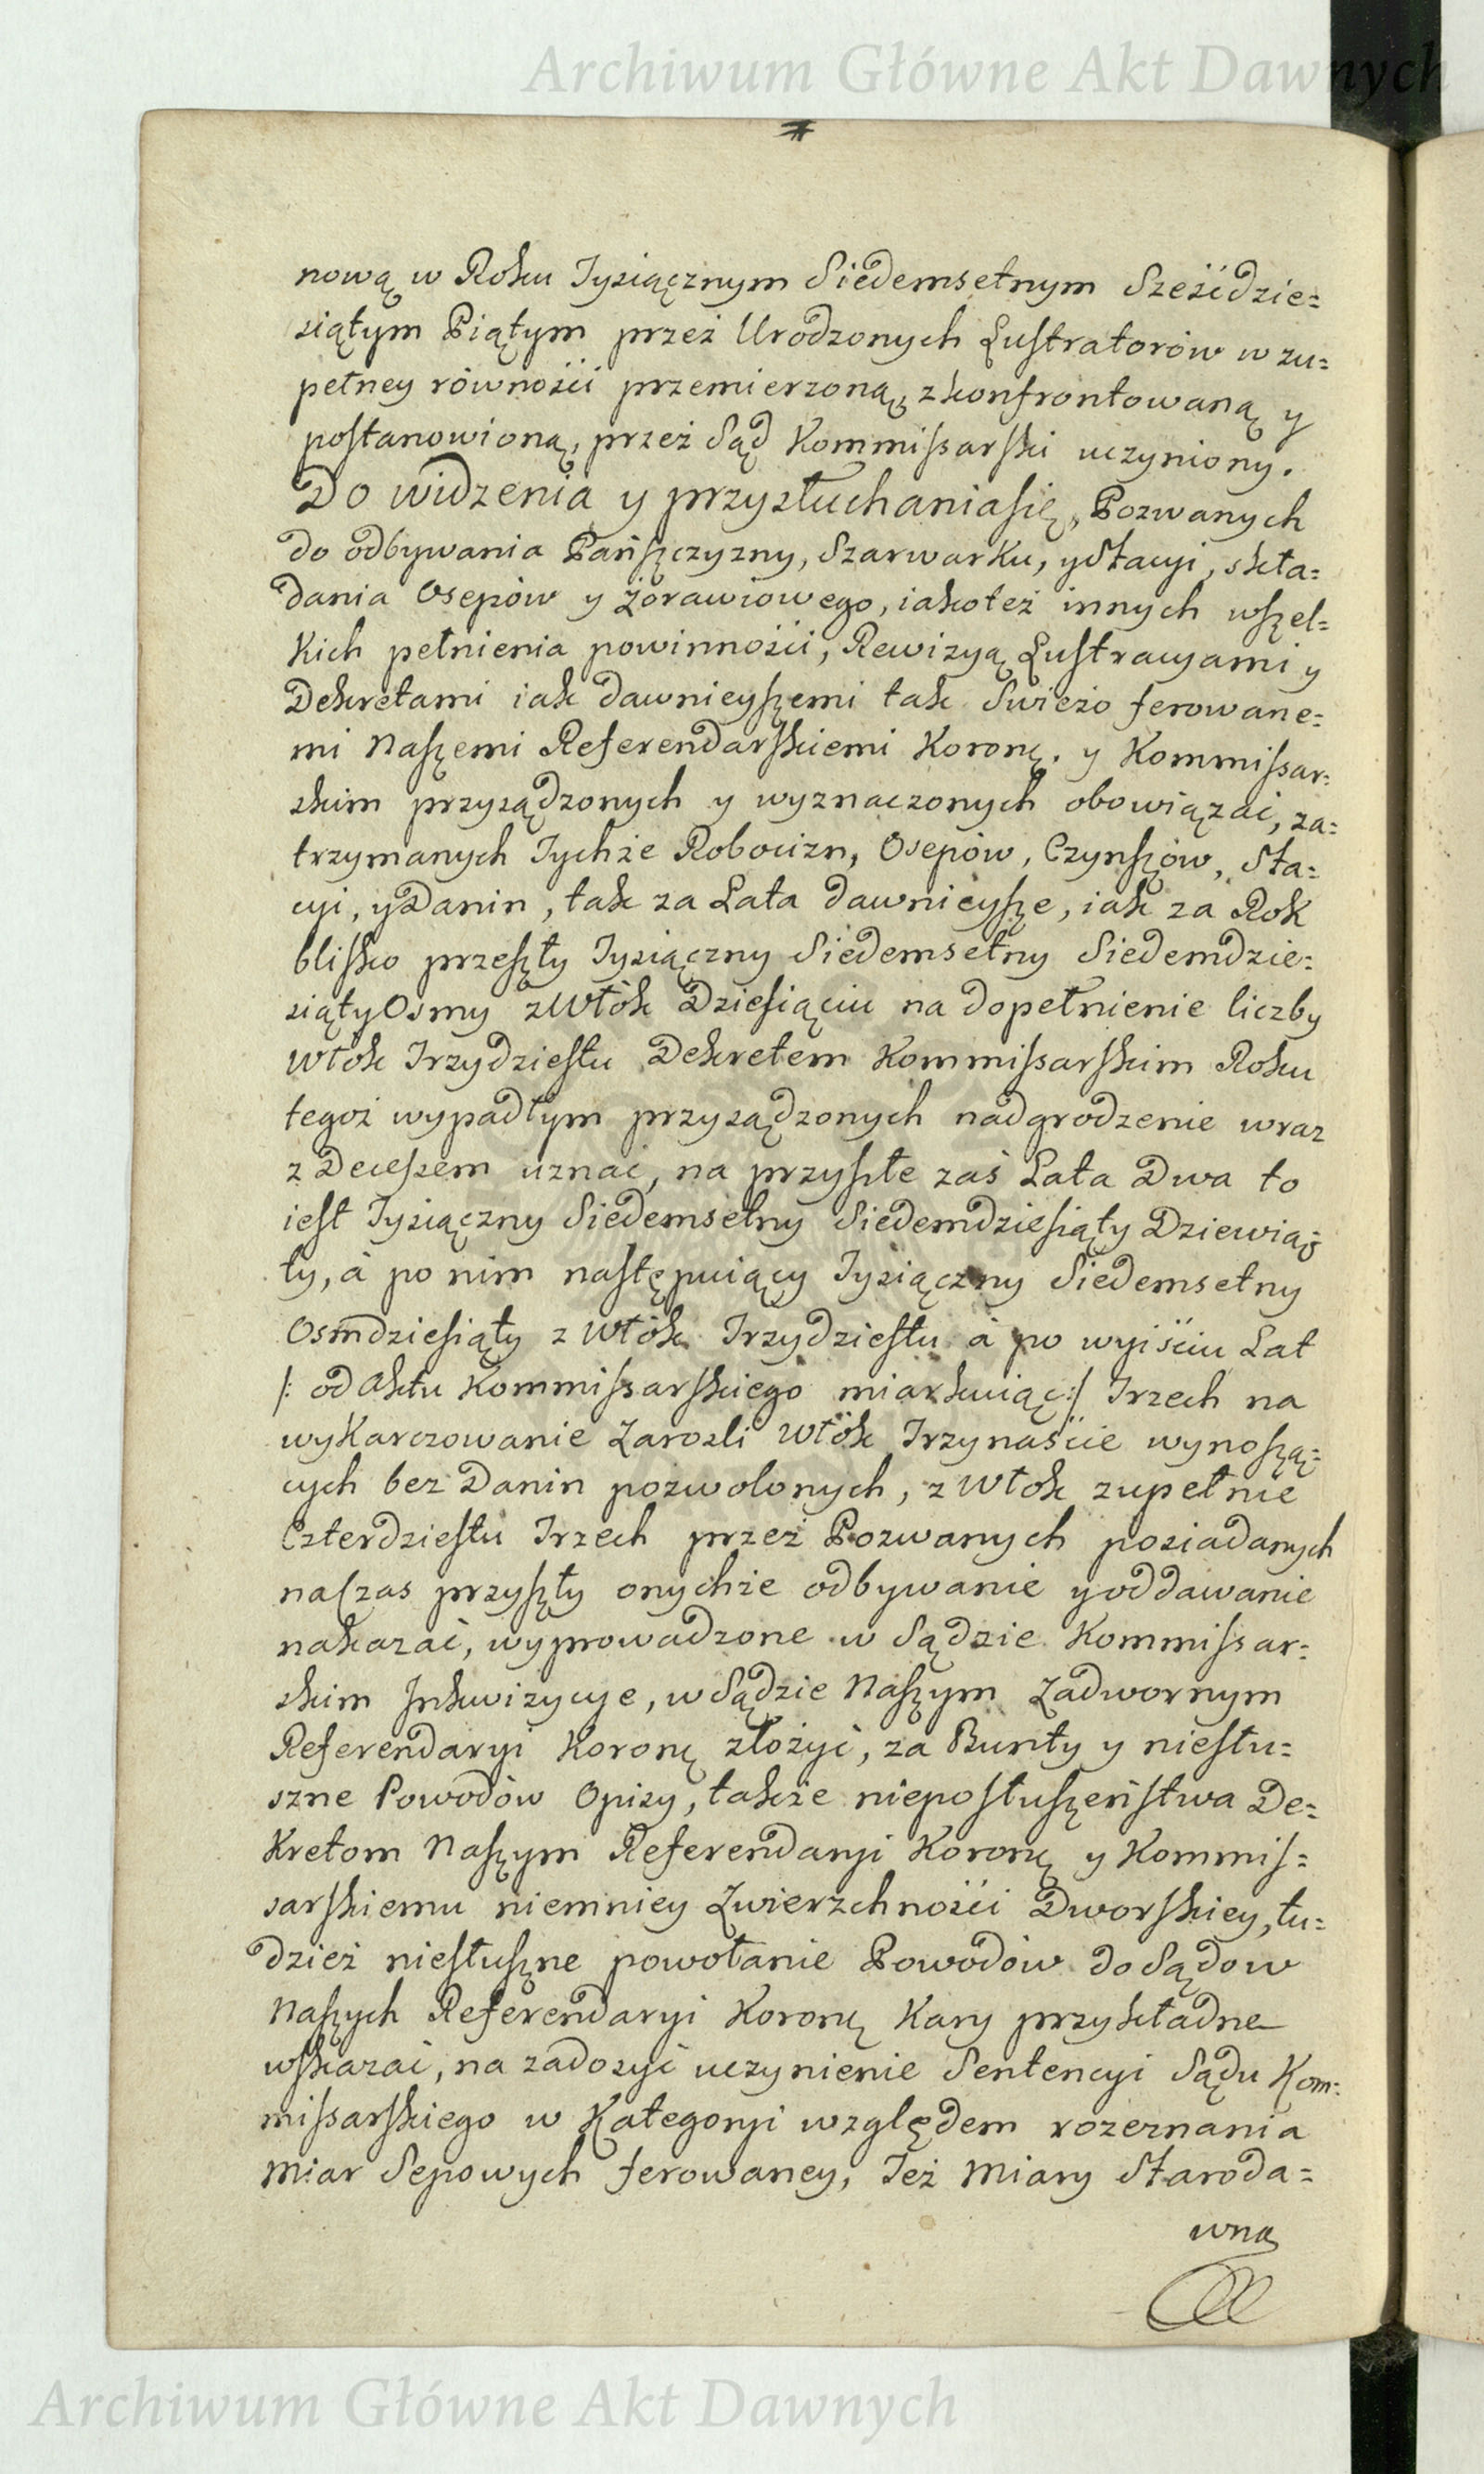 Archiwum Główne Akt Dawnych
nową w Roku Tysiącznym Siedemsetnym Sześćdzie=
siątym Piątym przez Urodzonych Lustratorów w zu=
pełney równości przemierzoną, zkonfrontowaną y
postanowioną, przez Sąd Kommissarski uczyniony.
Do widzenia y przysłuchania się, Pozwanych
do odbywania Pańszczyzny, Szarwarku, y Stacyi, skła=
dania Osepów y żórawiowego, iakoteż innych wszel=
kich pełnienia powinności, Rewizyą Lustracyami y
Dekretami iak dawnieyszemi tak Swieżo ferowane=
mi Naszemi Referendarskiemi Koronę. y Kommissar=
skim przysądzonych y wyznaczonych obowiązać, za=
trzymanych Tychże Robocizn, Osepów, Czynszów, Sta=
cyi, y Danin, tak za Lata dawnieysze, iak za Rok
blisko przeszły Tysiączny Siedemsetny Siedemdzie=
siąty Osmy z Włók Dziesiąciu na dopełnienie liczby
Włók Trzydziestu Dekretem Kommissarskim Roku
tegoż wypadłym przysądzonych nadgrodzenie wraz
z Decessem uznać, na przyszłe zaś Lata Dwa to
iest Tysiączny Siedemsetny Siedemdziesiąty Dziewią=
ty, à po nim następuiący Tysiączny Siedemsetny
Osmdziesiąty z Włók Trzydziestu à po wyiściu Lat
/: od Aktu Kommissarskiego miarkuiąc :/ Trzech na
wykarczowanie Zarosli Włók Trzynaście wynoszą=
cych bez Danin pozwolonych, z Włok zupełnie
Czterdziestu Trzech przez Pozwanych posiadanych
na czas przyszły onychże odbywanie y oddawanie
nakazać, wyprowadzone w Sądzie Kommissar=
skim Inkwizycye, w Sądzie Naszym Zadwornym
Referendaryi Koronę złożyć, za Bunty y niesłu=
szne Powodów Opisy, także nieposłuszeństwa De=
kretom Naszym Referendaryi Koronę y Kommis=
sarskiemu niemniey Zwierzchności Dworskiey, tu=
dzież niesłuszne powołanie Powodów do Sądow
Naszych Referendaryi Koronę Kary przykładne
wskazać, na zadosyć uczynienie Sentencyi Sądu Kom=
missarskiego w Kategoryi względem rozeznania
Miar Sepowych ferowaney, Też Miary Staroda=
wną
Archiwum Główne Akt Dawnych